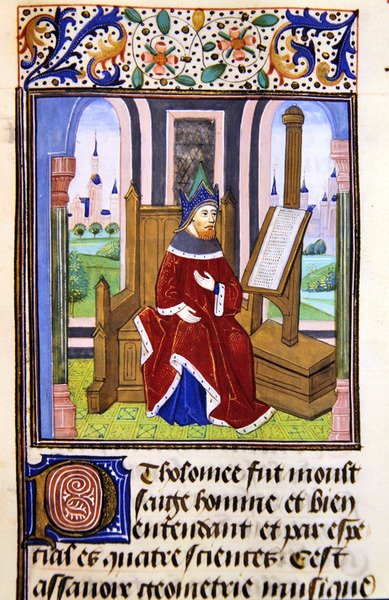 Ptholomee fut moult
saige homme et bien
entendant et par espe
cial es quatre sciences. C'est
assavoir geometrie musique